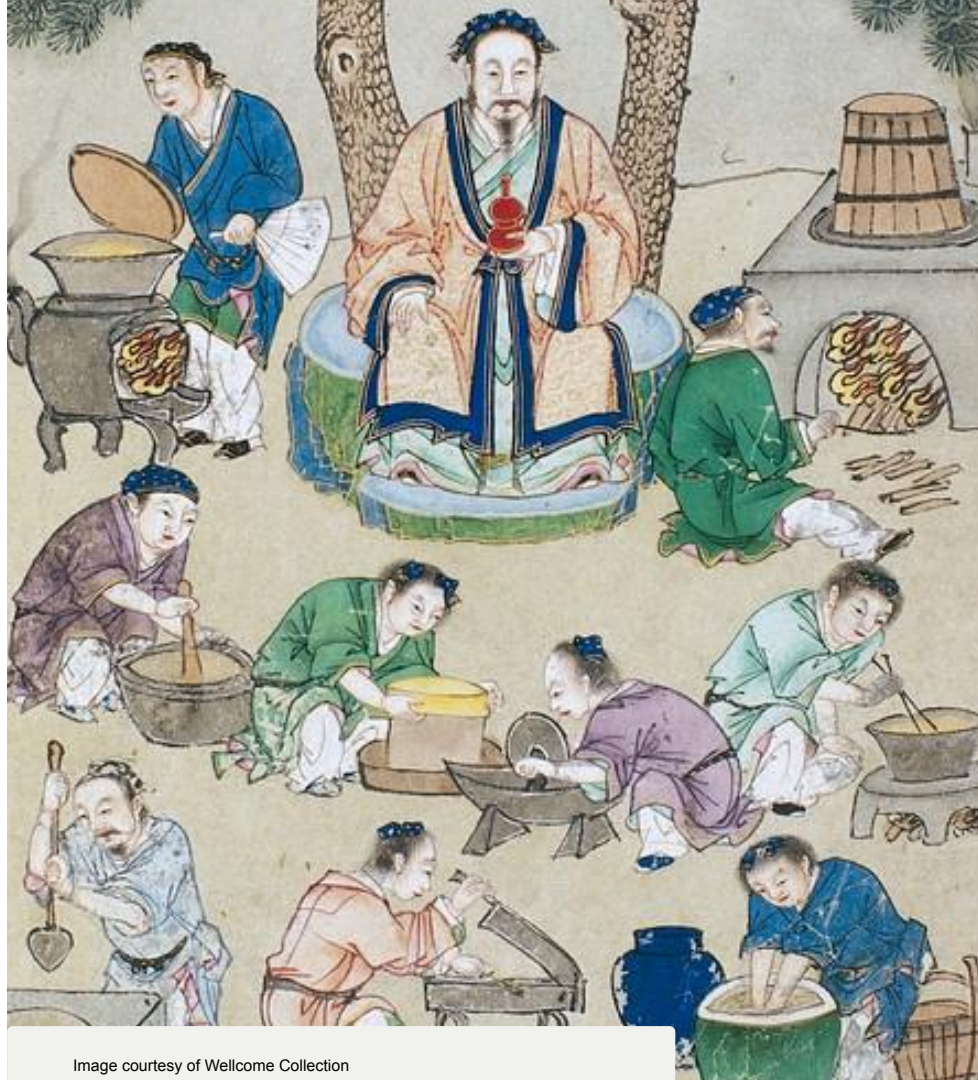 Image courtesy of Wellcome Collection